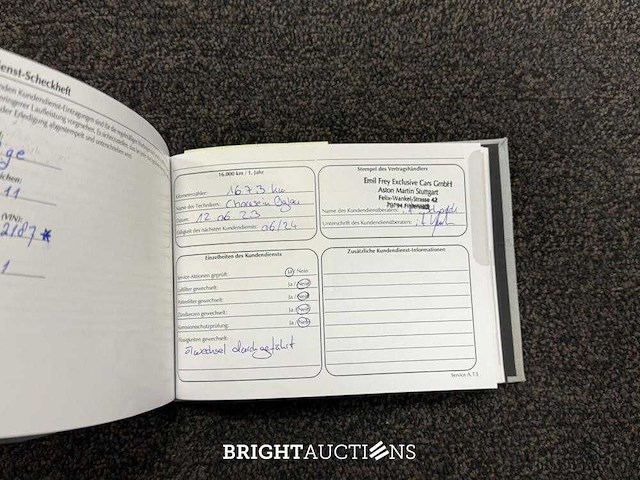 enst-Scheckheft
nden Kundendienst-Eintragungen und für die regelmäßigen
eringerer Laufleistung vorgesehen. Es ist
der Erledigung abgestempelt und unterschrieben wird.
ge
ichen:
11
(VIN):
2187*
1
16.000 km / 1. Jahr
Kilometerzähler: 1673 km
Name des Technikers:
Datum: 12 06 23
Fälligkeit des nächsten Kundendiensts: 06/24
Stempel des Vertragshändlers
Emil Frey Exclusive Cars GmbH
Aston Martin Stuttgart
Felix-Wankel-Strasse 42
Name des Kundendienstberaters:
Unterschrift des Kundendienstberaters:
Einzelheiten des Kundendiensts
Service-Aktionen geprüft: Ja / Nein
Luftfilter gewechselt: Ja / Nein
Pollenfilter gewechselt: Ja / Nein
Zündkerzen gewechselt: Ja / Nein
Korrosionsschutzprüfung: Ja / Nein
Flüssigkeiten gewechselt:
Ölwechsel durchgeführt
Zusätzliche Kundendienst-Informationen
Service A.13
BRIGHTAUCTIONS